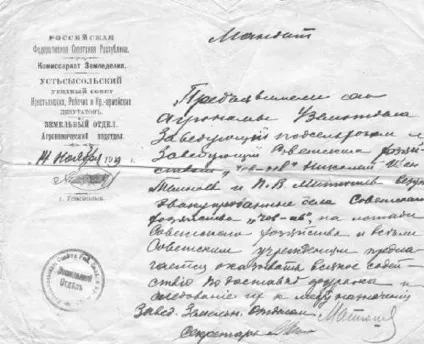 РОССИЙСКАЯ
Федеративная Советская Республика.
Комиссариат Земледелия.
УСТЬСЫСОЛЬСКИЙ
УЕЗДНЫЙ СОВЕТ
Крестьянских, Рабочих и Кр.-армейских
ДЕПУТАТОВ.
ЗЕМЕЛЬНЫЙ ОТДЕЛ.
Агрономический подотдел.
14 Ноября 1919 г.
г. Устьсысольск
Мандат
Предъявители сего
агрономы Уземотдела
Заведующий подсектором и
Заведующий Советским хозяй
ством "Чов-ю" Николай
и П. В. везут
эвакуированные дела Советского
хозяйства, на лошади
Советского хозяйства и всем
Советским учреждениям предла-
гается оказывать всякое содей-
ствие по доставке фуража и
следование их к месту назначения
Завед. Земельн. Отделом
Секретарь
Земельный
Отдел